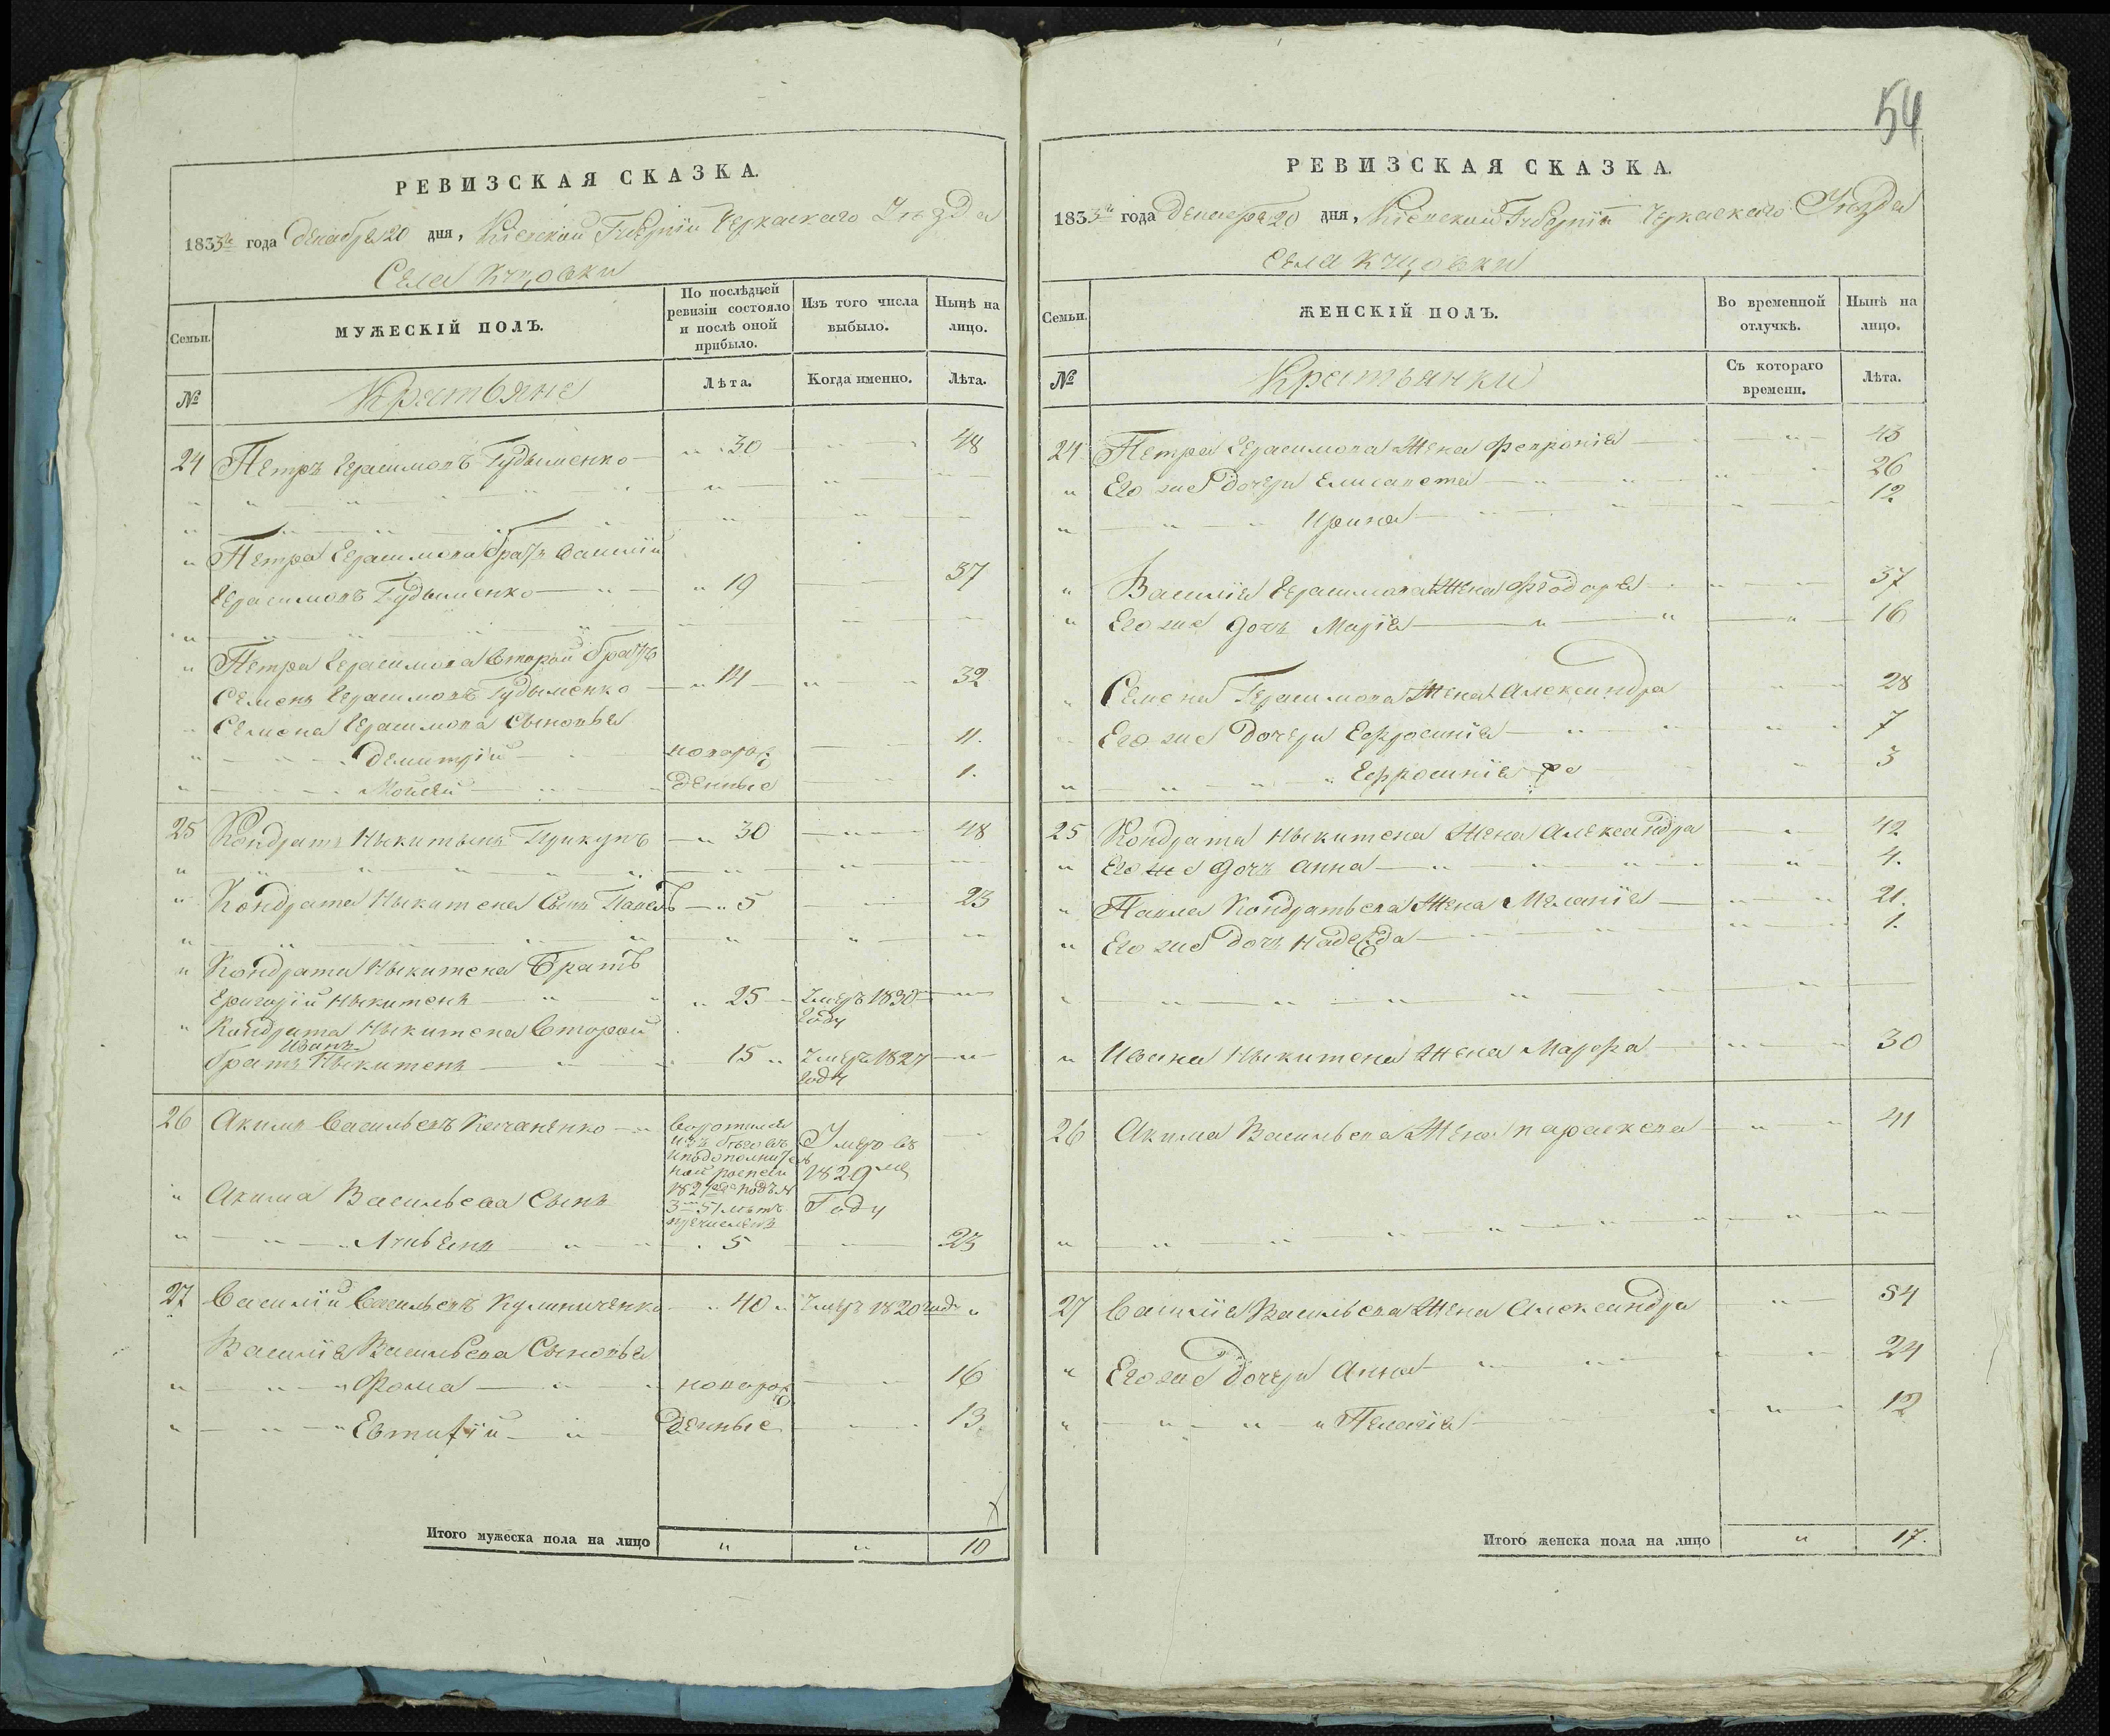 РЕВИЗСКАЯ СКАЗКА.
1833го года декабря 20 дня, Кіевской Губерніи Черкаскаго Уѣзда
Села Куцовки
Семьи.
МУЖЕСКІЙ ПОЛЪ.
По послѣдней ревизіи состояло и послѣ оной прибыло.
Изъ того числа выбыло.
Нынѣ на лицо.
№
Крестьяне
Лѣта.
Когда именно.
Лѣта.
24 Петръ Герасимовъ Гудыменко 30 48
Петра Герасимова братъ Василій
Герасимовъ Гудыменко 19 37
Петра Герасимова второй братъ
Семенъ Герасимовъ Гудыменко 14 32
Семена Герасимова сыновья
Демитрій новорож 11.
Мойсей денные 1.
25 Кондратъ Никитинъ 30 48
Кондрата Никитена сынъ Павелъ 5 23
Кондрата Никитена братъ
Григорій Никитенъ 25 Умеръ 1830
году
Кондрата Никитена второй
Иванъ
братъ Никитенъ 15 Умеръ 1827
году
26 Акимъ Васильевъ воротился
изъ бѣговъ Умеръ въ
и по дополнитель
ной 1829мъ
Акима Васильева сынъ
лѣтъ Году
5 23
27 Василій Васильевъ Кулиниченко 40 Умеръ 1820 года
Василія Васильева Сыновья
Фома новорож 16
Евтифій денные 13
Итого мужеска пола на лицо 10
54
РЕВИЗСКАЯ СКАЗКА.
1833го года декабря 20 дня, Кіевской Губерніи Черкаскаго Уѣзда
села Куцовки
Семьи.
ЖЕНСКІЙ ПОЛЪ.
Во временной отлучкѣ.
Нынѣ на лицо.
№
Крестьянки
Съ котораго времени.
Лѣта.
24 Петра Герасимова Жена Февронія 43
Его же дочери Елисавета 26
Ирина 12
Василія Герасимова Жена Феодора 37
Его же дочь Марія 16
Семена Герасимова Жена Александра 28
Его же дочери Ефросинія 7
Ефросинія 3
25 Кондрата Никитена Жена Александра 42
Его же дочь Анна 4.
Павла Кондратьева Жена Меланія 21.
Его же дочь Надежда 1.
Ивана Никитена Жена Марфа 30
26 Акима Васильева Жена Параскева 41
27 Василія Васильева Жена Александра 54
Его же дочери Анна 24
Пелагія 12
Итого женска пола на лицо 17.